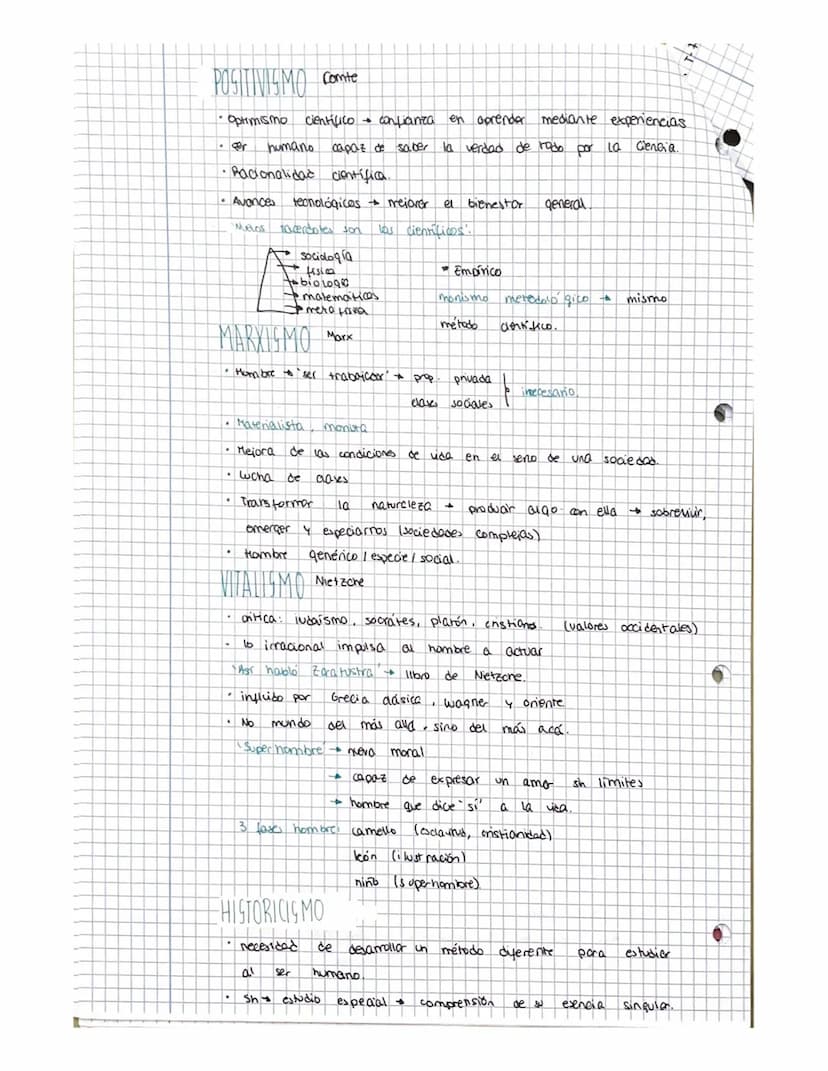 POSITIVISMO Comte
· Optimismo científico → confianza en aprender mediante experiencias
· ser humano capaz de saber la verdad de todo por la Ciencia.
· Racionalidad científica.
· Avances tecnológicos → mejorar el bienestar general.
sacerdotes son los científicos'.
→ sociología
→ física
→ biología
→ matemáticas
→ metafísica
* Empírico
monismo metodológico → mismo
método científico.
MARXISMO Marx
· Hombre → 'ser trabajador' → prop. privada
clases sociales
innecesario.
· Materialista, monista
· Mejora de las condiciones de vida en el seno de una sociedad.
· Lucha de clases
· Transformar la naturaleza → producir algo con ella → sobrevivir,
emerger y especiarnos (sociedades complejas)
· Hombre genérico / especie / social.
VITALISMO Nietzche
· crítica: judaísmo, socrátes, platón, cristians. (valores occidentales)
· lo irracional impulsa al hombre a actuar
'Así habló Zaratustra' → libro de Nietzche.
· influido por Grecia clásica, wagner y oriente
· No mundo del más allá, sino del más acá.
'Superhombre' → nueva moral
→ capaz de expresar un amor sin límites
→ hombre que dice 'sí' a la vida.
3 fases hombre: camello (esclavitud, cristiandad)
león (ilustración)
niño (superhombre)
HISTORICISMO
· necesidad de desarrollar un método diferente para estudiar
al ser humano.
· Sh → estudio especial → comprensión de su esencia singular.